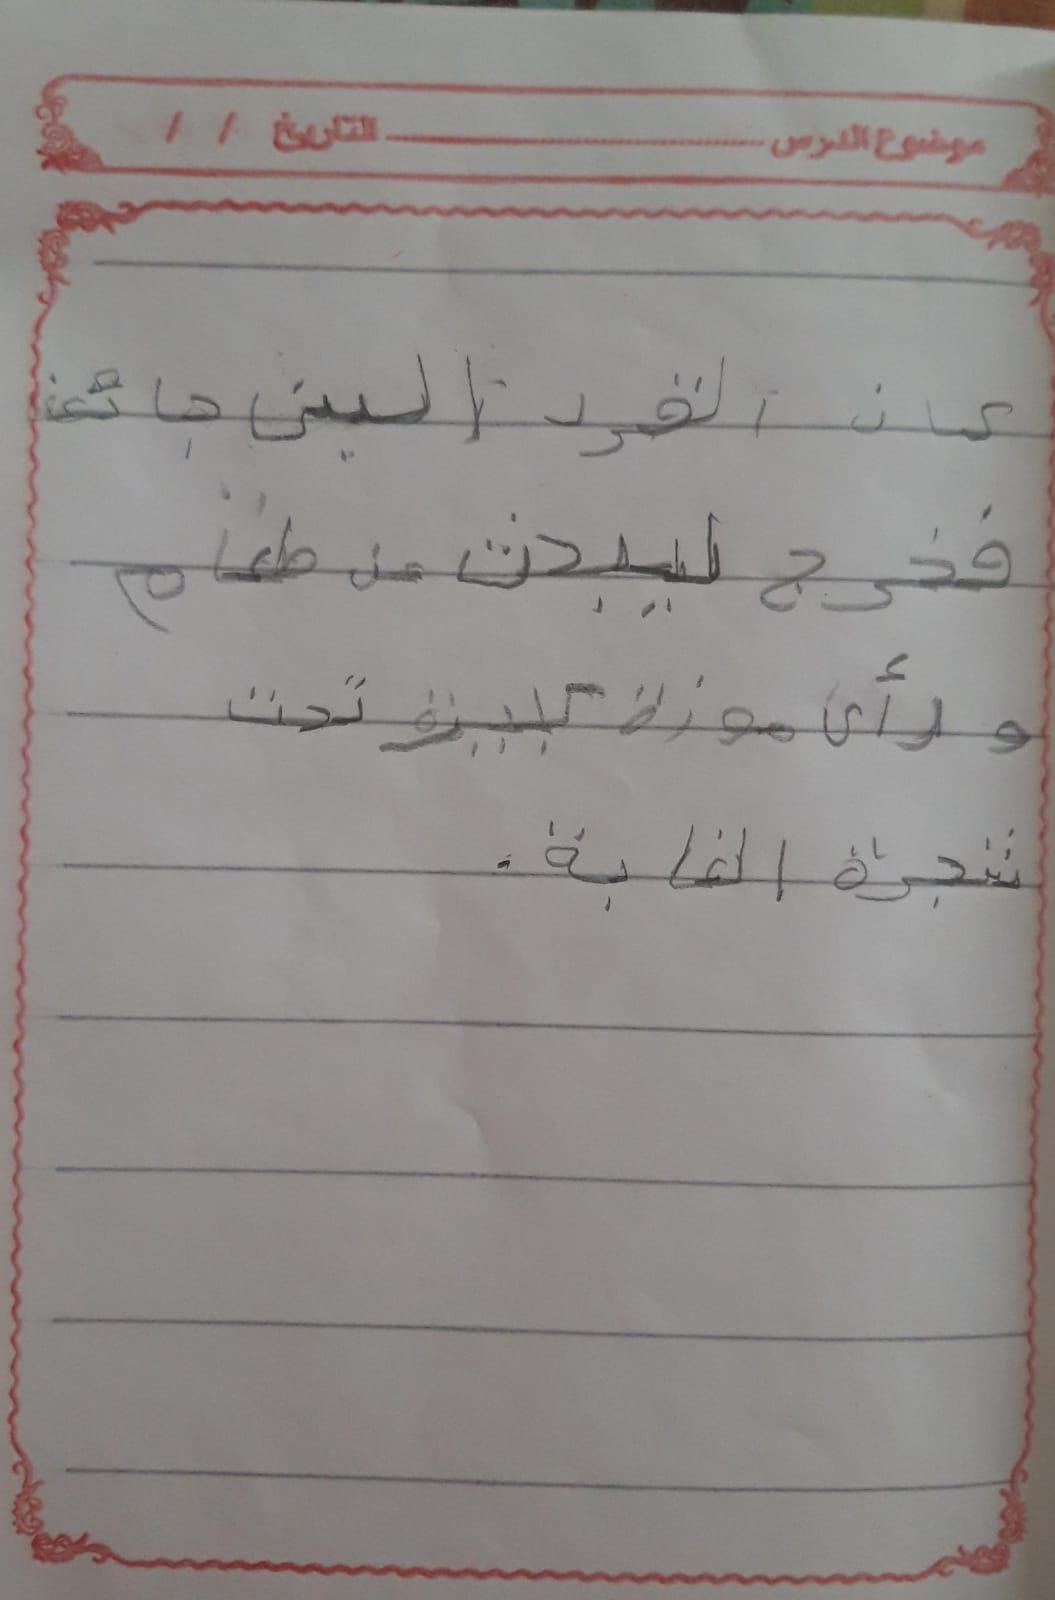 موضوع الدرس التاريخ / /
كان القرد السيئ جائعا
فخرج ليبحث عن طعام
و رأى موزة كبيرة تحت
شجرة الغابة.